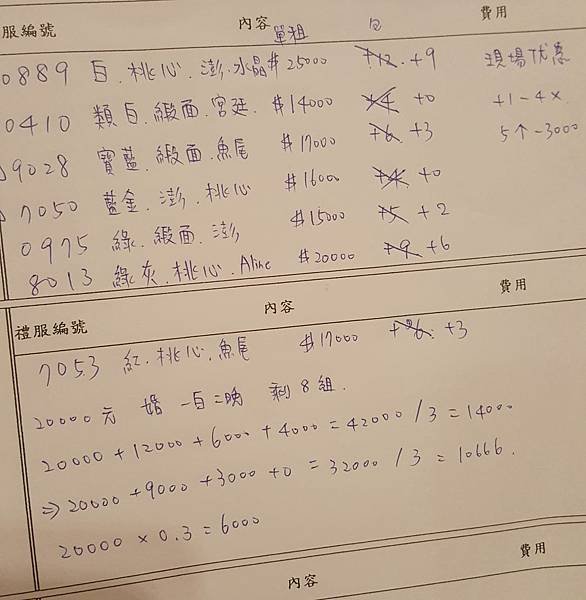 服編號 內容 費用
單租 包
0889 白.桃心.澎.水晶 $25000 +12 +9 現場优惠
0410 類白.緞面.宮廷. $14000 +4 +0 +1-4×
9028 寶藍.緞面.魚尾 $17000 +6 +3 5个-3000
7050 藍金.澎.桃心 $16000 +4 +0
0975 綠.緞面.澎 $15000 +5 +2
8013 綠灰.桃心.Aline $20000 +9 +6
禮服編號 內容 費用
7053 紅.桃心.魚尾 $17000 +6 +3
20000元 婚 一白二晚 剩8組.
20000+12000+6000+4000=42000/3=14000
⇒20000+9000+3000+0=32000/3=10666.
20000×0.3=6000
內容 費用